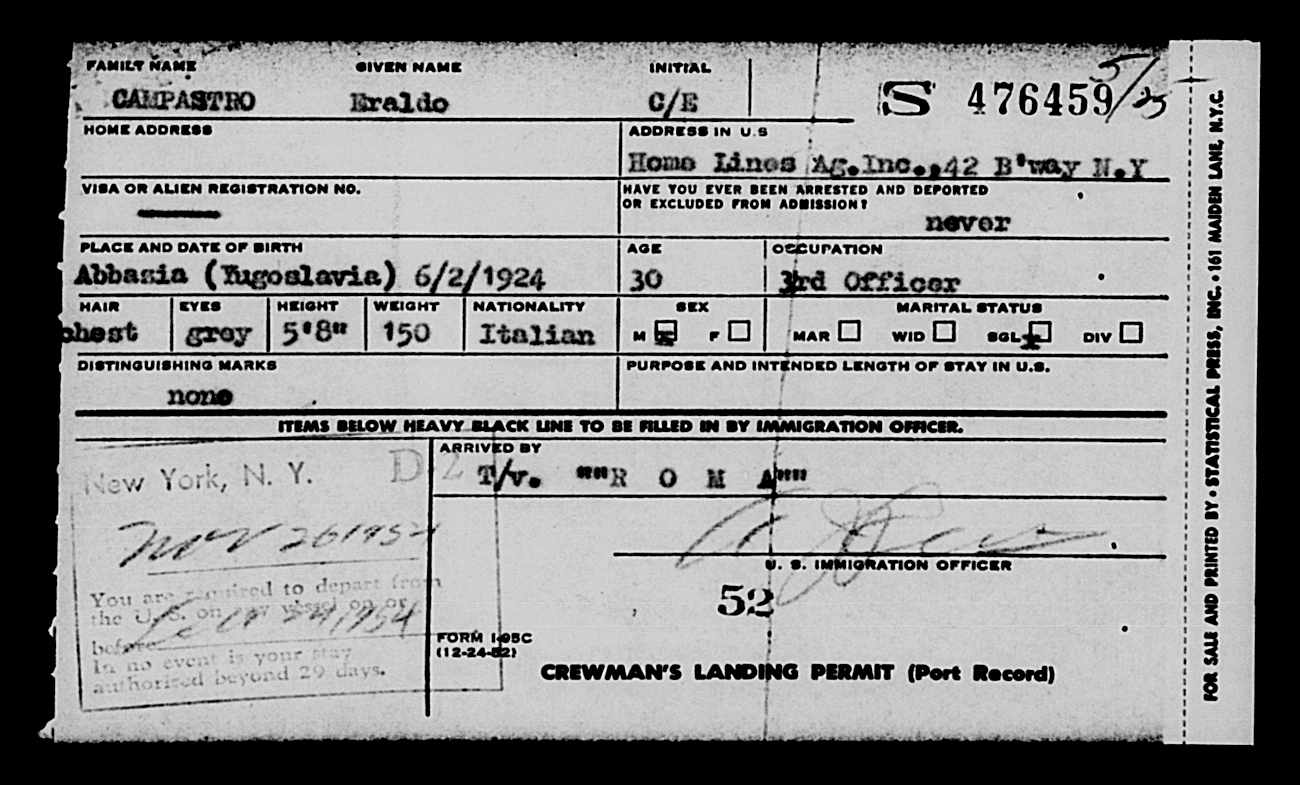 FAMILY NAME GIVEN NAME INITIAL
CAMPASTRO Eraldo C/E S 476459 5/25
HOME ADDRESS ADDRESS IN U.S
Home Lines Ag.Inc.,42 B'way N.Y
VISA OR ALIEN REGISTRATION NO. HAVE YOU EVER BEEN ARRESTED AND DEPORTED
OR EXCLUDED FROM ADMISSION?
never
PLACE AND DATE OF BIRTH AGE OCCUPATION
Abbazia (Yugoslavia) 6/2/1924 30 3rd Officer
HAIR EYES HEIGHT WEIGHT NATIONALITY SEX MARITAL STATUS
chest grey 5'8" 150 Italian M x F MAR WID SGL x DIV
DISTINGUISHING MARKS PURPOSE AND INTENDED LENGTH OF STAY IN U.S.
none
ITEMS BELOW HEAVY BLACK LINE TO BE FILLED IN BY IMMIGRATION OFFICER.
ARRIVED BY
New York, N. Y. D 2 T/v. ""R O M A""
Nov 26 1954
U. S. IMMIGRATION OFFICER
You are required to depart from
the U.S. on any vessel on or
before 24 1954
52
In no event is your stay
authorized beyond 29 days.
FORM I-95C
(12-24-52)
CREWMAN'S LANDING PERMIT (Port Record)
FOR SALE AND PRINTED BY • STATISTICAL PRESS, INC. • 161 MAIDEN LANE, N.Y.C.